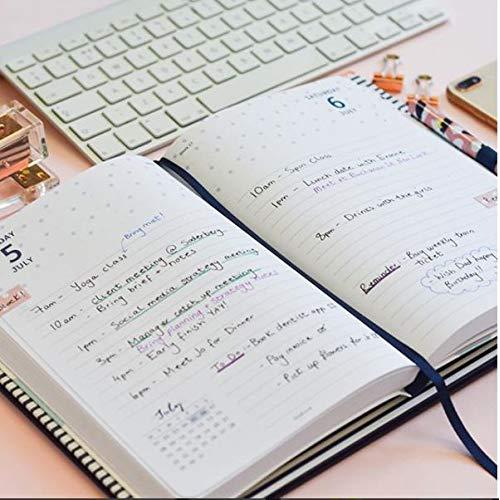 DAY
5
JULY
Bring mat!
7am - Yoga class
10am - Client meeting @ Soderberg
Bring brief + notes
1pm - Social media strategy meeting
3pm - Manager catch up meeting
Bring planning + strategy notes
4pm - Early finish YAY!
6pm - Meet Jo for Dinner
To Do - Book dentist app.
- Pay invoice
- Pick up flowers for
July
SATURDAY
6
JULY
10am - Spin Class
1pm - Lunch date with
Meet at
8pm - Drinks with the girls
Reminder - Buy weekly train
ticket
Wish Dad happy
Birthday!